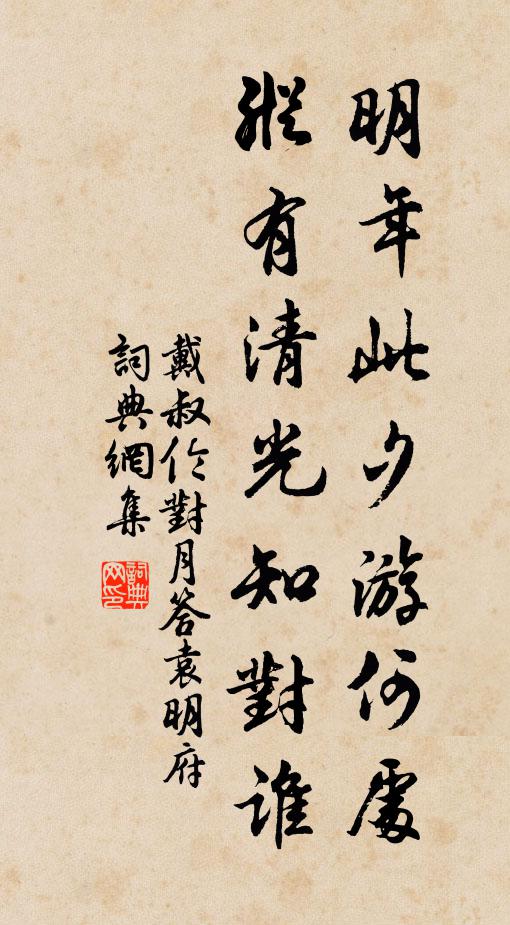 明年此夕游何處
縱有清光知對誰
戴叔伦對月答袁明府
詞典網集
詞典网印